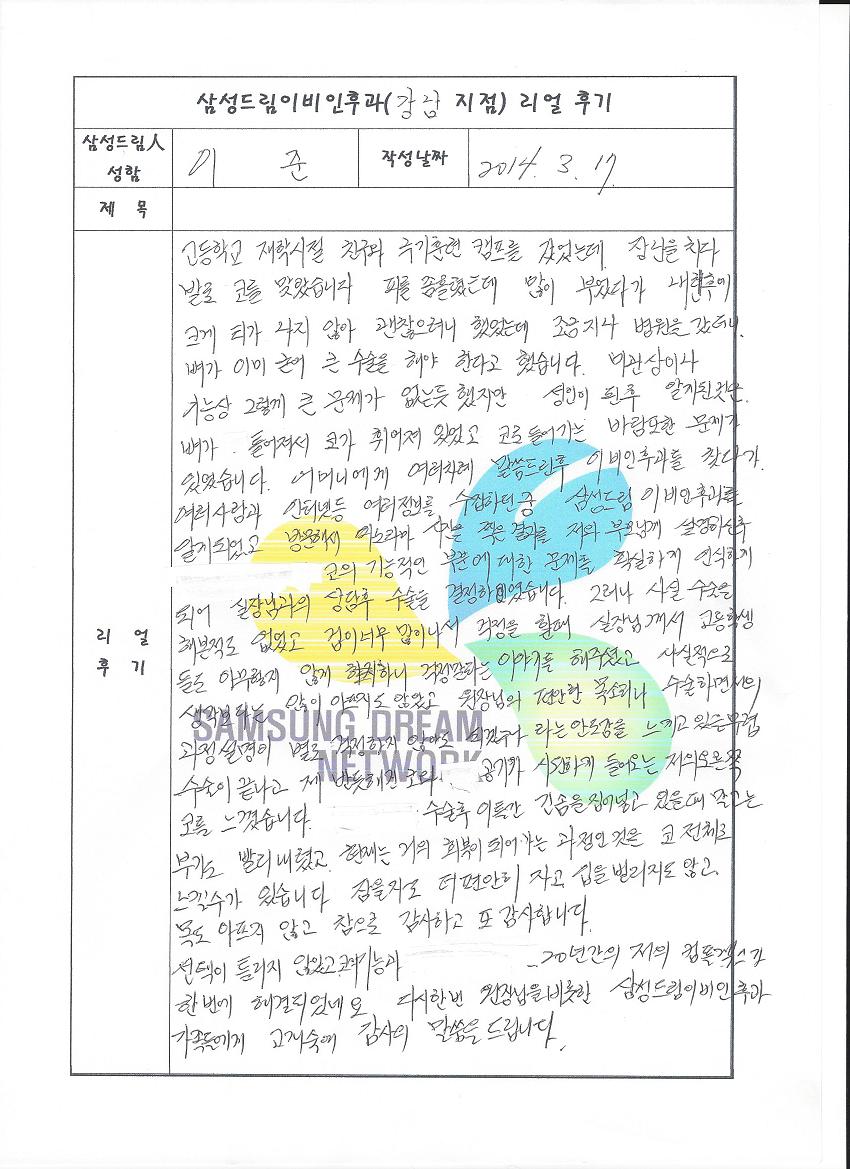 삼성드림이비인후과(강남 지점) 리얼 후기
삼성드림人 성함
이 준
작성날짜
2014. 3. 17
제 목
리 얼 후 기
고등학교 재학시절 친구와 극기훈련 캠프를 갔었는데 장난을 치다
발로 코를 맞았습니다 피를 좀흘렸는데 많이 부었다가 내린후에
크게 티가 나지 않아 괜찮으려니 했었는데 조금지나 병원을 갔더니.
뼈가 이미 굳어 큰 수술을 해야 한다고 했습니다. 미관상이나
기능상 그렇게 큰 문제가 없는듯 했지만 성인이 된후 알게된것은.
뼈가 틀어져서 코가 휘어져 있었고 코로 들어가는 바람또한 문제가
있었습니다. 어머니에게 여러차례 말씀드린후 이비인후과를 찾다가.
여러사람과 인터넷등 여러정보를 수집하던중 삼성드림 이비인후과를
알게되었고 방문해서 엑스레이 사진을 찍은결과를 저와 부모님께 설명하신후
코의 기능적인 부분에 대한 문제를 확실하게 인식하게
되어 실장님과의 상담후 수술을 결정하였습니다. 그러나 사실 수술을
해본적도 없었고 겁이너무 많이나서 걱정을 할때 실장님께서 고등학생
들도 아무렇지 않게 하니 걱정말라는 이야기를 해주셨고 사실적으로
생각보다는 많이 아프지도 않았고 원장님의 편안한 목소리나 수술하면서의
과정설명이 별로 걱정하지 않아도 되겠구나 라는 안도감을 느끼고 있을무렵
수술이 끝나고 제 반듯해진 코와 공기가 시원하게 들어오는 저의오른쪽
코를 느꼈습니다. 수술후 이틀간 긴솜을집어넣고 있을때 말고는
부기도 빨리내렸고 현재는 거의 회복이 되어가는 과정인 것을 코 전체로
느낄수가 있습니다 잠을자도 더편안히 자고 입을 벌리지도 않고
목도 아프지 않고 참으로 감사하고 또 감사합니다.
선택이 틀리지 않았고 코의기능과 ..20년간의 저의 컴플렉스가
한번에 해결되었네요 다시한번 원장님을비롯한 삼성드림이비인후과
가족들에게 고개숙여 감사의 말씀을 드립니다.
SAMSUNG DREAM
NETWORK